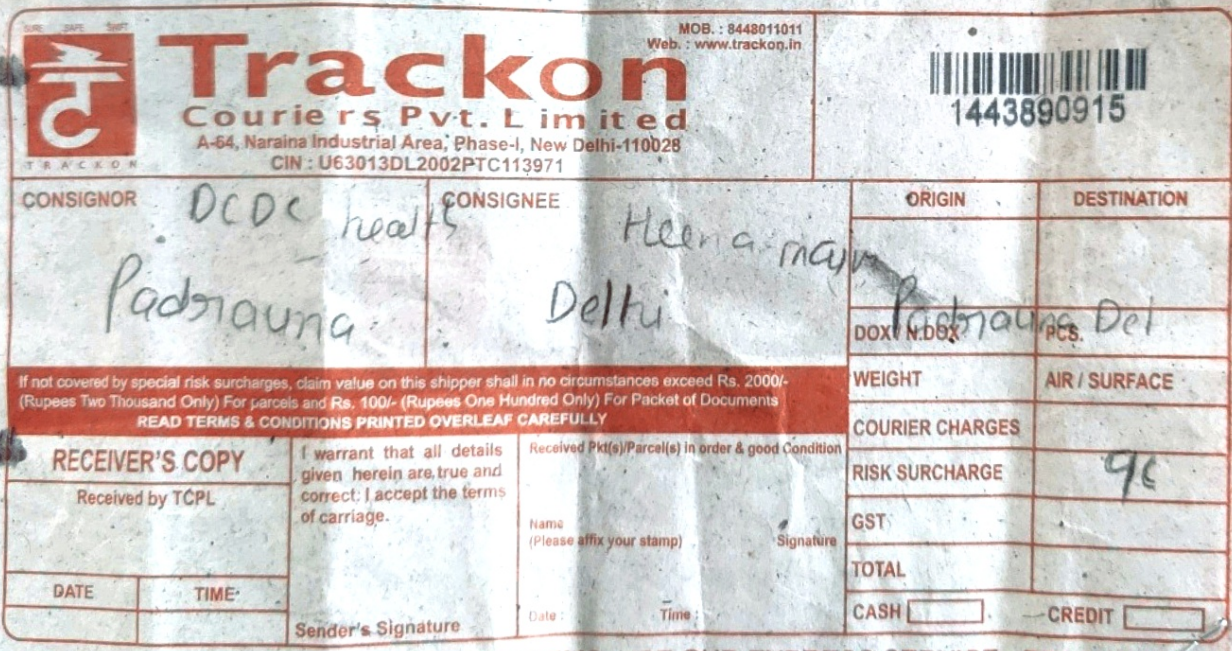 SURE SAFE SWIFT
TRACKON
Trackon
Couriers Pvt. Limited
A-64, Naraina Industrial Area, Phase-I, New Delhi-110028
CIN : U63013DL2002PTC113971
MOB. : 8448011011
Web. : www.trackon.in
1443890915
CONSIGNOR
DCDC health
Padrauna
CONSIGNEE
Heena
Delhi
ORIGIN
DESTINATION
Padrauna Del
DOX / N.DOX
PCS.
WEIGHT
AIR / SURFACE
COURIER CHARGES
RISK SURCHARGE
GST
TOTAL
CASH
CREDIT
If not covered by special risk surcharges, claim value on this shipper shall in no circumstances exceed Rs. 2000/-
(Rupees Two Thousand Only) For parcels and Rs. 100/- (Rupees One Hundred Only) For Packet of Documents
READ TERMS & CONDITIONS PRINTED OVERLEAF CAREFULLY
RECEIVER'S COPY
Received by TCPL
DATE
TIME
I warrant that all details
given herein are true and
correct. I accept the terms
of carriage.
Sender's Signature
Received Pkt(s)/Parcel(s) in order & good Condition
Name
(Please affix your stamp)
Signature
Date :
Time :